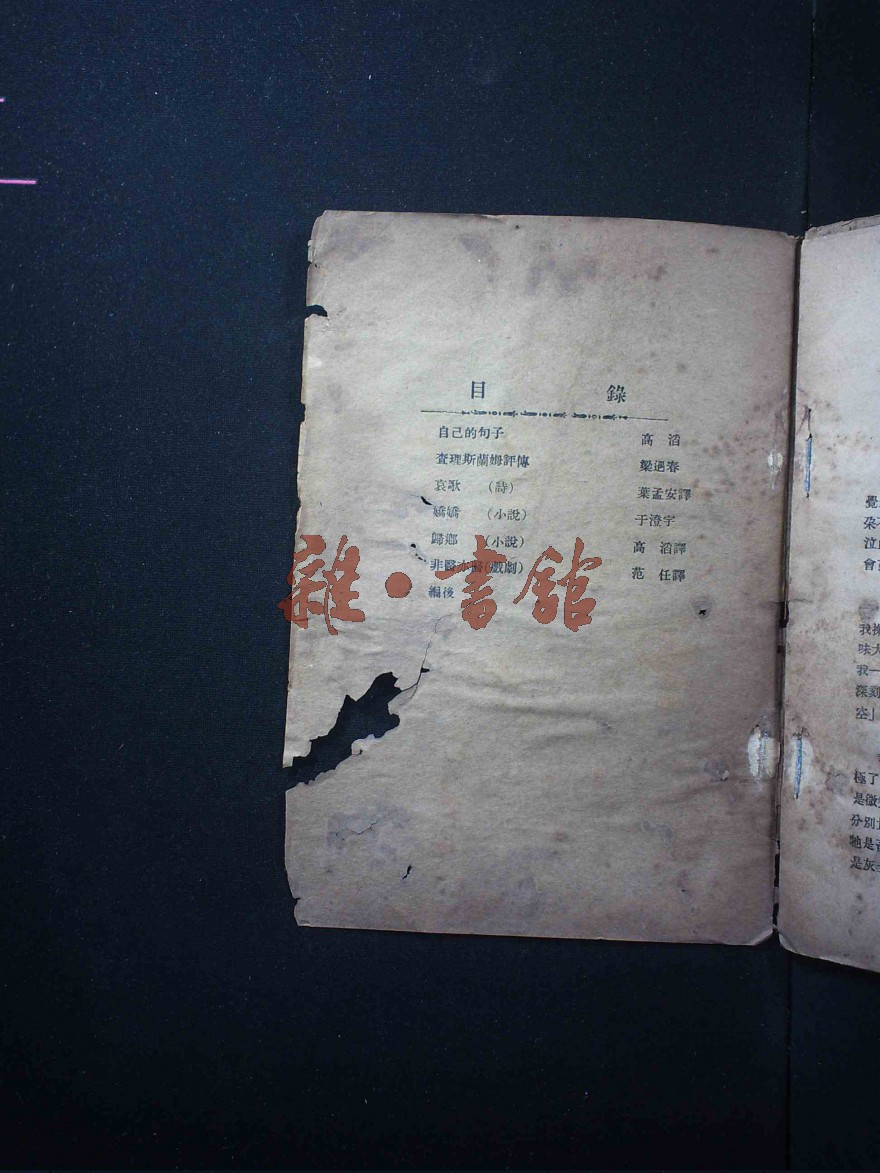 目 錄
自己的句子 高 滔
查理斯蘭姆評傳 梁遇春
哀歌 (詩) 葉孟安譯
嬌嬌 (小說) 于澄宇
歸鄉 (小說) 高 滔譯
非醫亦醫(戲劇) 范 任譯
編後
雜·書館
覺
朶
泣
會
我
味大
我一
深刻
空」
極了
是微
分別
牠是
是灰